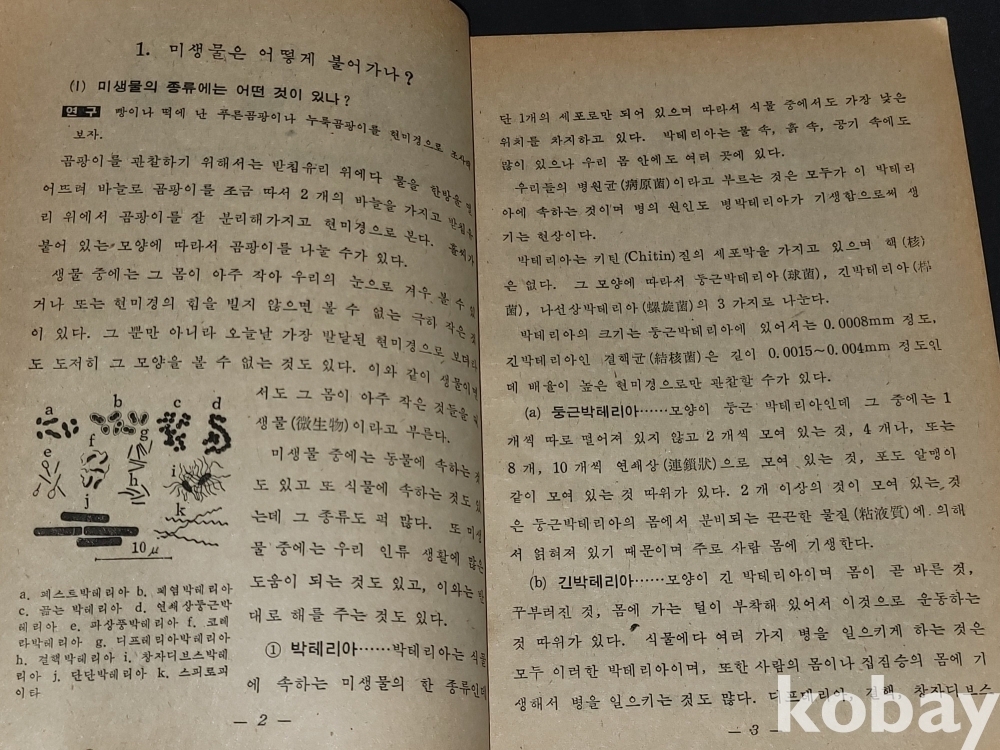 1. 미생물은 어떻게 불어가나?
(1) 미생물의 종류에는 어떤 것이 있나?
연구 빵이나 떡에 난 푸른곰팡이나 누룩곰팡이를 현미경으로 조사해
보자.
곰팡이를 관찰하기 위해서는 받침유리 위에다 물을 한방울 떨
어뜨려 바늘로 곰팡이를 조금 따서 2 개의 바늘을 가지고 받침유
리 위에서 곰팡이를 잘 분리해가지고 현미경으로 본다. 홀씨가
붙어 있는 모양에 따라서 곰팡이를 나눌 수가 있다.
생물 중에는 그 몸이 아주 작아 우리의 눈으로 겨우 볼 수 있
거나 또는 현미경의 힘을 빌지 않으면 볼 수 없는 극히 작은 것
이 있다. 그 뿐만 아니라 오늘날 가장 발달된 현미경으로 보더라
도 도저히 그 모양을 볼 수 없는 것도 있다. 이와 같이 생물이면
서도 그 몸이 아주 작은 것들을
생물(微生物)이라고 부른다.
미생물 중에는 동물에 속하는 것
도 있고 또 식물에 속하는 것도 있
는데 그 종류도 퍽 많다. 또 미생
물 중에는 우리 인류 생활에 많은
도움이 되는 것도 있고, 이와는 반
대로 해를 주는 것도 있다.
① 박테리아……박테리아는 식물
에 속하는 미생물의 한 종류인데
a b c d
e f g h i
j k
10 μ
a. 페스트박테리아 b. 폐염박테리아
c. 곪는 박테리아 d. 연쇄상둥근박
테리아 e. 파상풍박테리아 f. 코레
라박테리아 g. 디프테리아박테리아
h. 결핵박테리아 i. 창자디브스박테
리아 j. 단단박테리아 k. 스피로피
이타
— 2 —
단 1개의 세포로만 되어 있으며 따라서 식물 중에서도 가장 낮은
위치를 차지하고 있다. 박테리아는 물 속, 흙 속, 공기 속에도
많이 있으나 우리 몸 안에도 여러 곳에 있다.
우리들의 병원균(病原菌)이라고 부르는 것은 모두가 이 박테리
아에 속하는 것이며 병의 원인도 병박테리아가 기생함으로써 생
기는 현상이다.
박테리아는 키틴(Chitin)질의 세포막을 가지고 있으며 핵(核)
은 없다. 그 모양에 따라서 둥근박테리아(球菌), 긴박테리아(桿
菌), 나선상박테리아(螺旋菌)의 3 가지로 나눈다.
박테리아의 크기는 둥근박테리아에 있어서는 0.0008mm 정도,
긴박테리아인 결핵균(結核菌)은 길이 0.0015~0.004mm 정도인
데 배율이 높은 현미경으로만 관찰할 수가 있다.
(a) 둥근박테리아……모양이 둥근 박테리아인데 그 중에는 1
개씩 따로 떨어져 있지 않고 2 개씩 모여 있는 것, 4 개나, 또는
8 개, 10 개씩 연쇄상(連鎖狀)으로 모여 있는 것, 포도 알맹이
같이 모여 있는 것 따위가 있다. 2 개 이상의 것이 모여 있는 것
은 둥근박테리아의 몸에서 분비되는 끈끈한 물질(粘液質)에 의해
서 얽혀져 있기 때문이며 주로 사람 몸에 기생한다.
(b) 긴박테리아……모양이 긴 박테리아이며 몸이 곧 바른 것,
꾸부러진 것, 몸에 가는 털이 부착해 있어서 이것으로 운동하는
것 따위가 있다. 식물에다 여러 가지 병을 일으키게 하는 것은
모두 이러한 박테리아이며, 또한 사람의 몸이나 집짐승의 몸에 기
생해서 병을 일으키는 것도 많다. 디프테리아, 결핵, 창자디브스
— 3 —
kobay